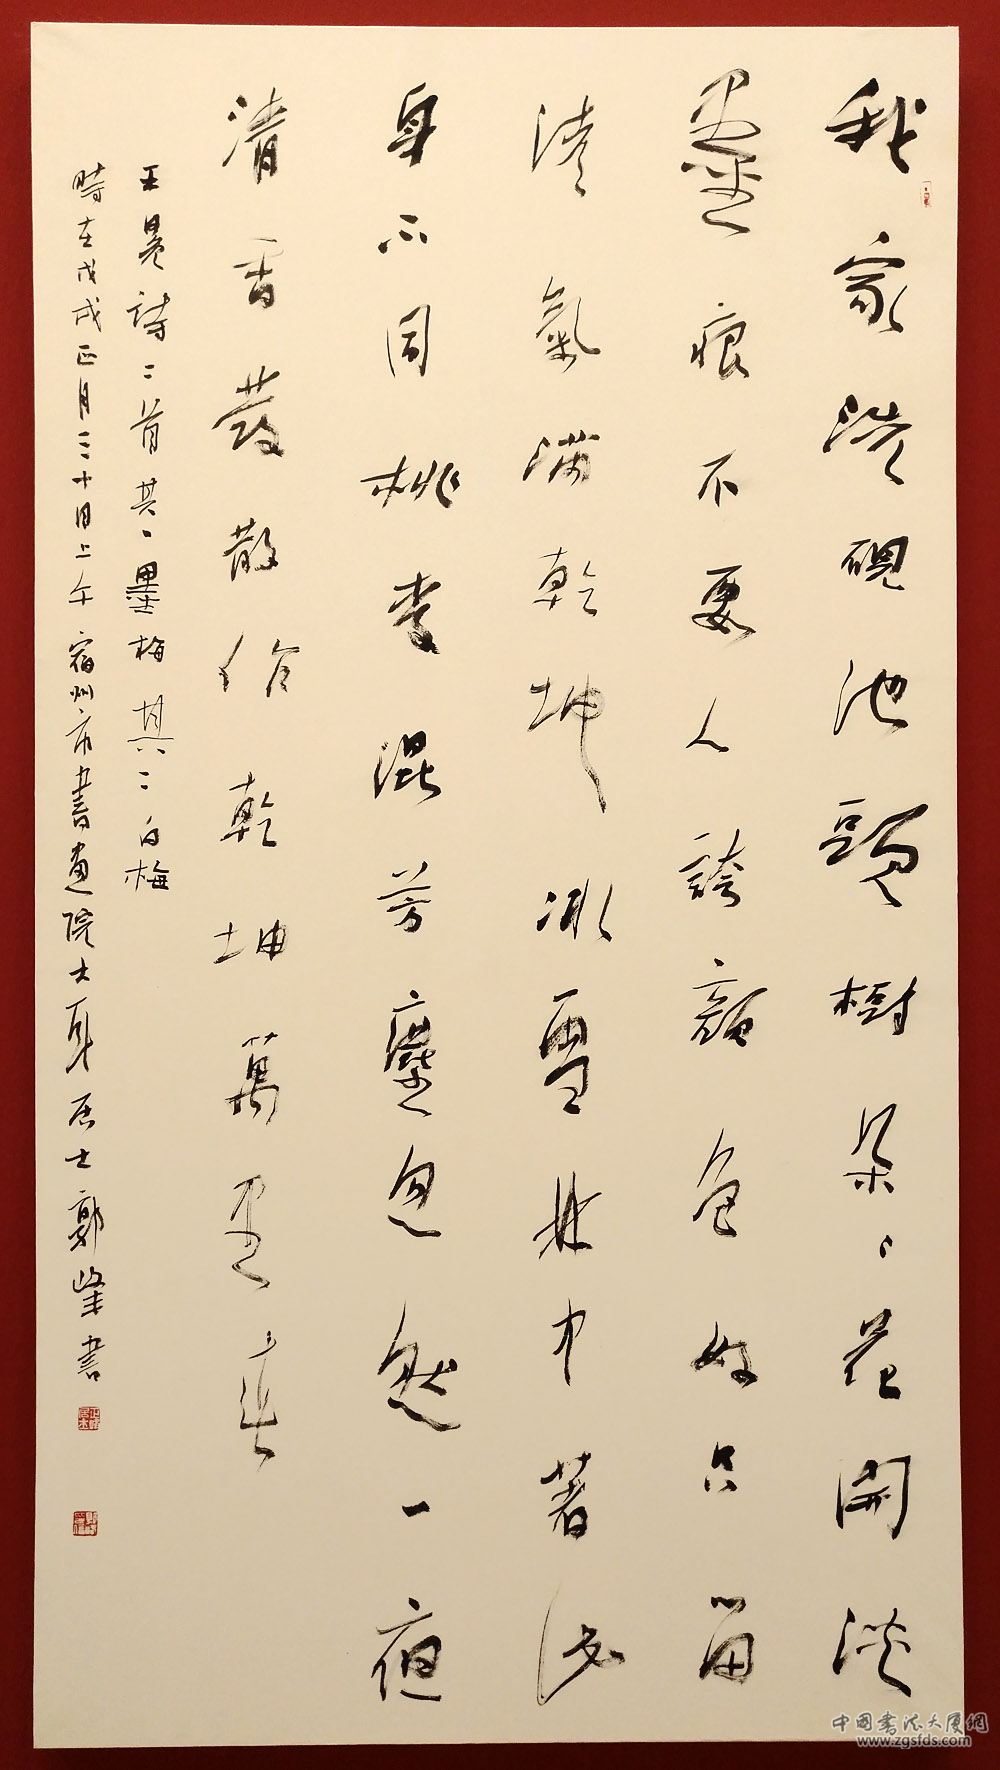 我家洗硯池頭樹朵々花開淡
墨痕不要人誇顏色好只留
清氣滿乾坤冰雪林中著此
身不同桃李混芳塵忽然一夜
清香發散作乾坤萬里春
王冕詩二首其一墨梅其二白梅
時在戊戌正月三十日上午宿州市書畫院大耳居士郭峰書
中国书法大厦網
www.zgsfds.com